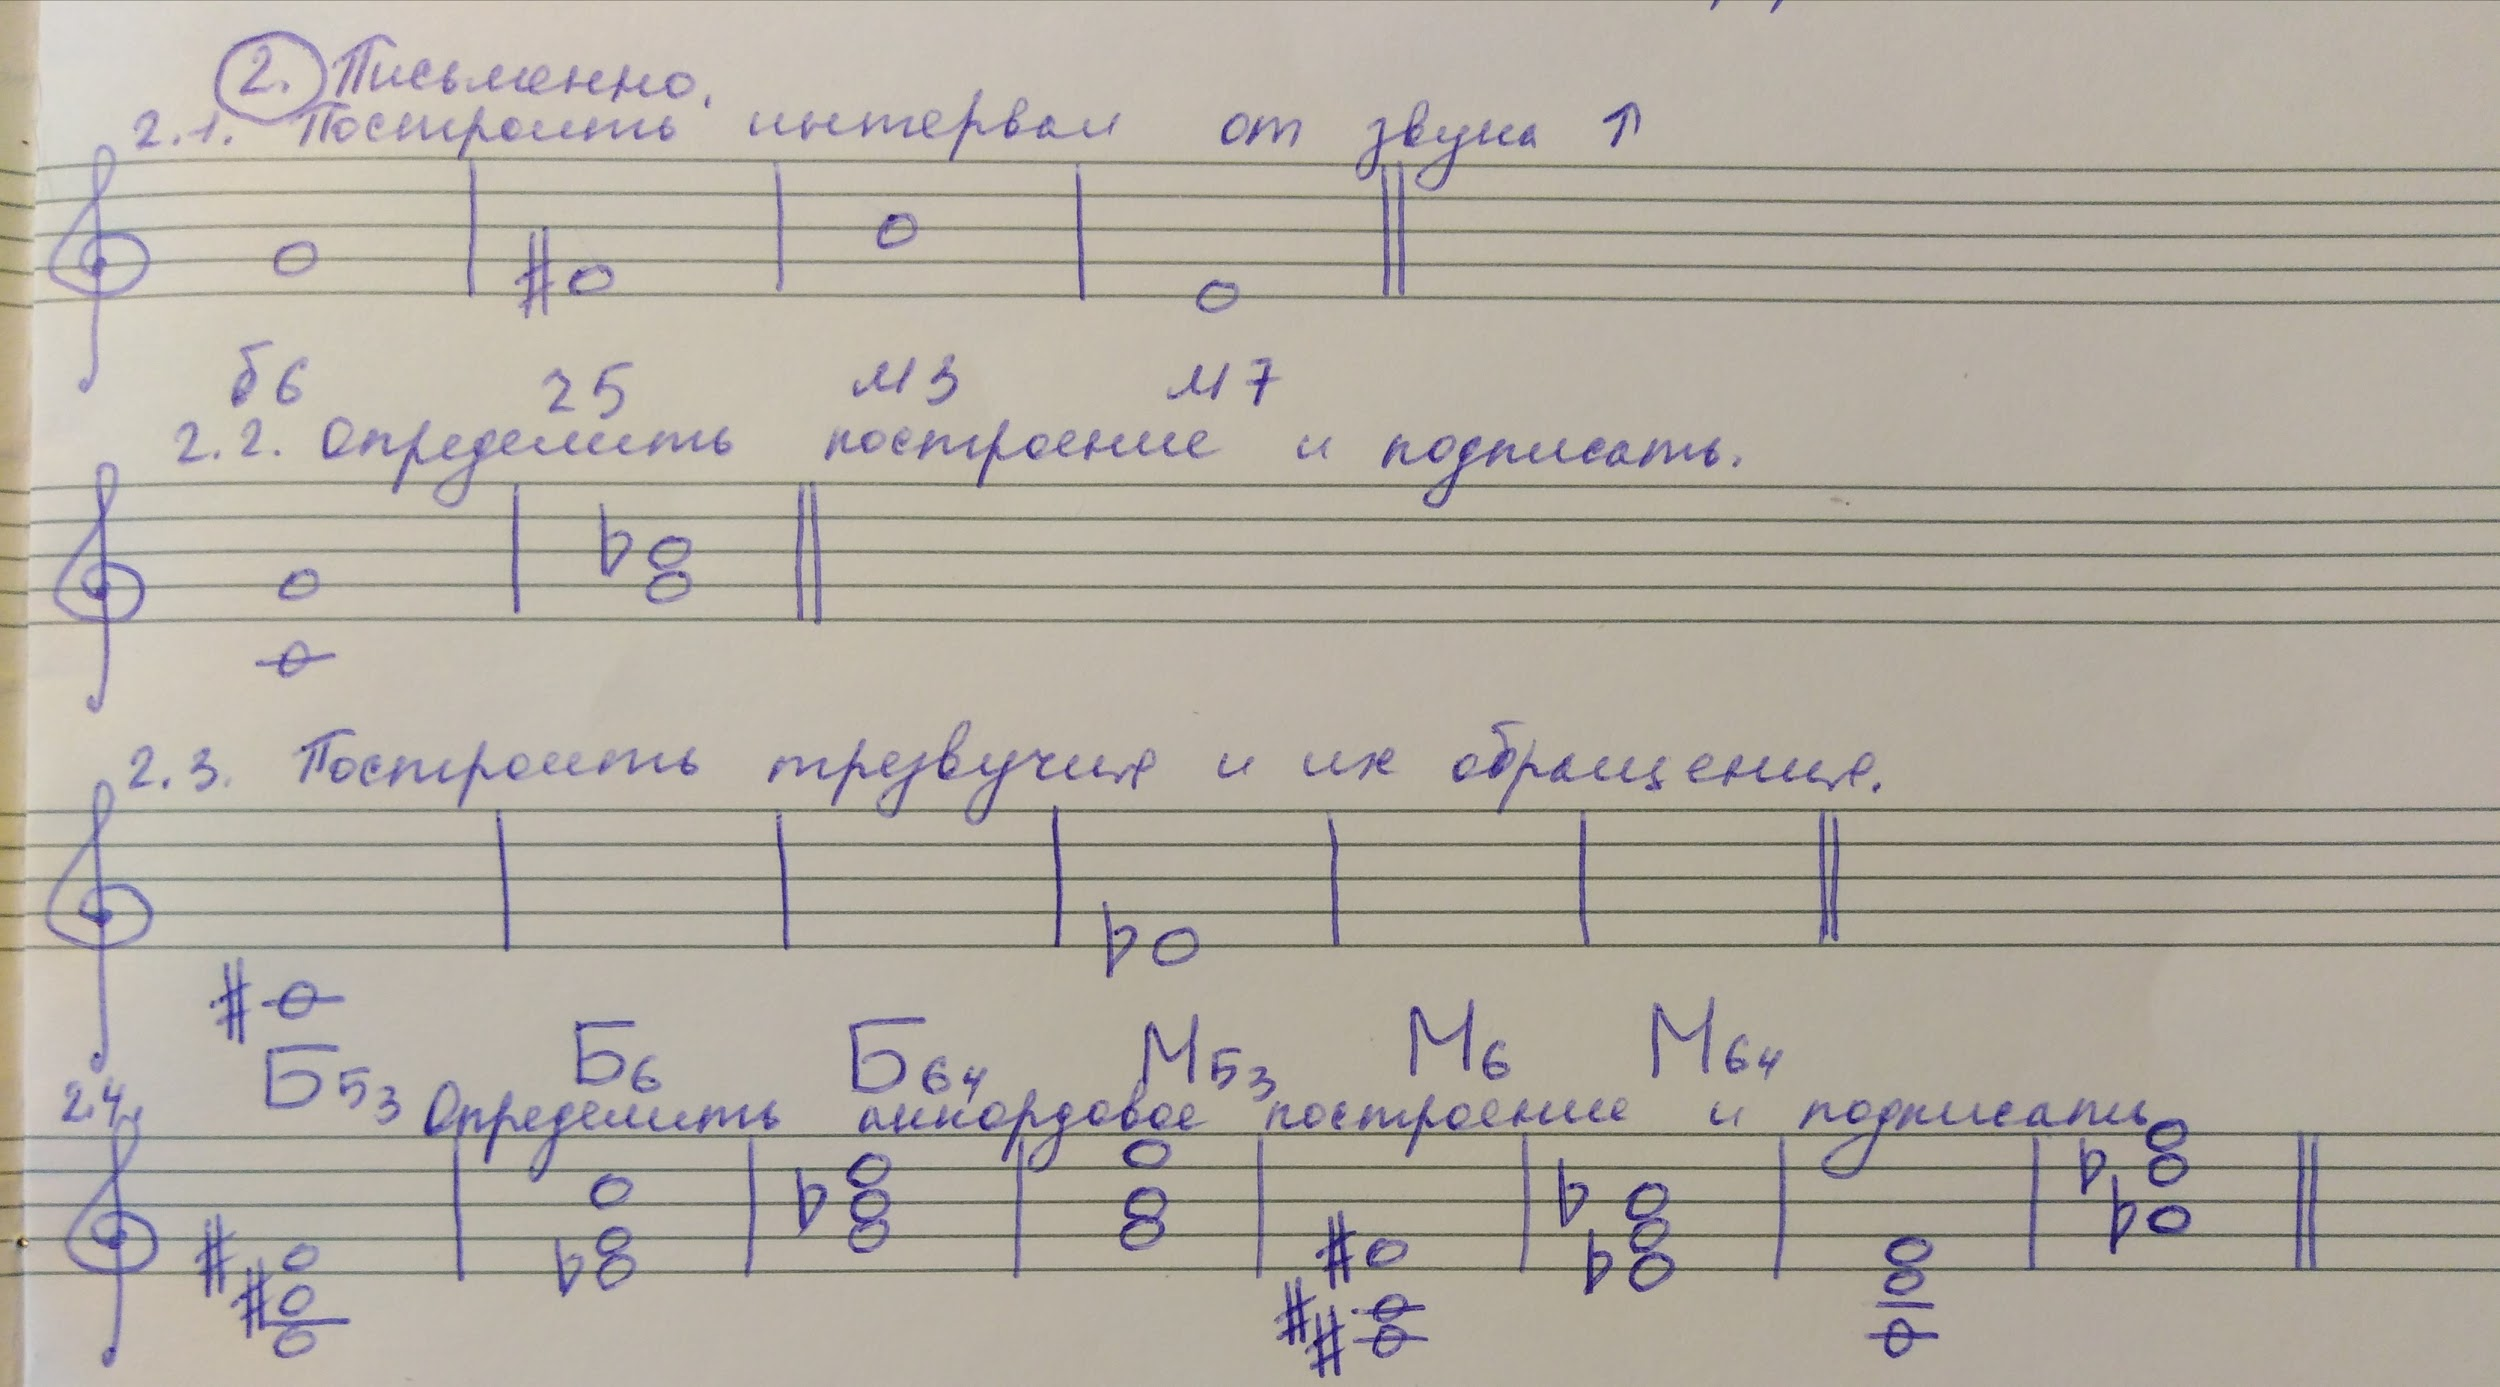 2. Письменно.
2.1. Построить интервал от звука ↑
б6 ч5 м3 м7
2.2. Определить построение и подписать.
2.3. Построить трезвучия и их обращения.
Б53 Б6 Б64 М53 М6 М64
2.4. Определить аккордовое построение и подписать